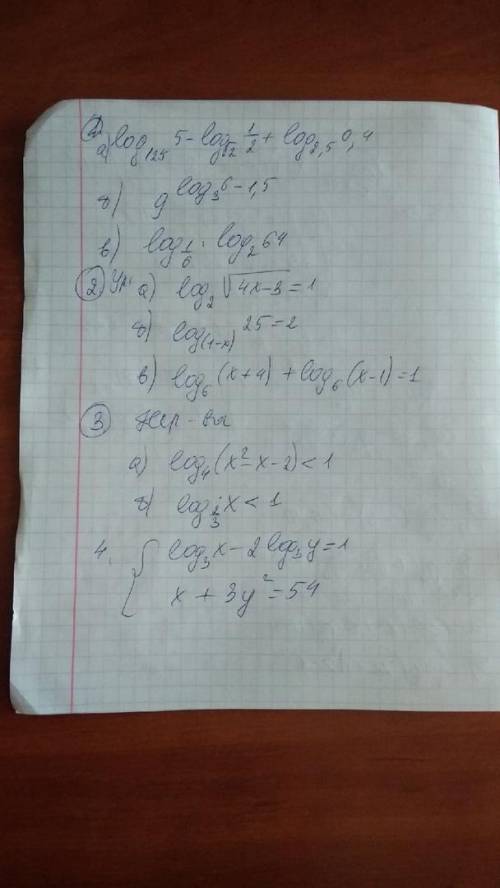 1
а) log₁₂₅ 5 - log_√2 1/2 + log₂,₅ 0,4
б) 9^(log₃6 - 1,5)
в) log_1/6 · log₂ 64
2 Ур. а) log₂ √(4x-3) = 1
б) log_(1-x) 25 = 2
в) log₆ (x+4) + log₆ (x-1) = 1
3 Нер-ва
а) log₄ (x²-x-2) < 1
б) log_1/3 x < 1
4. { log₃ x - 2 log₃ y = 1
x + 3y² = 54